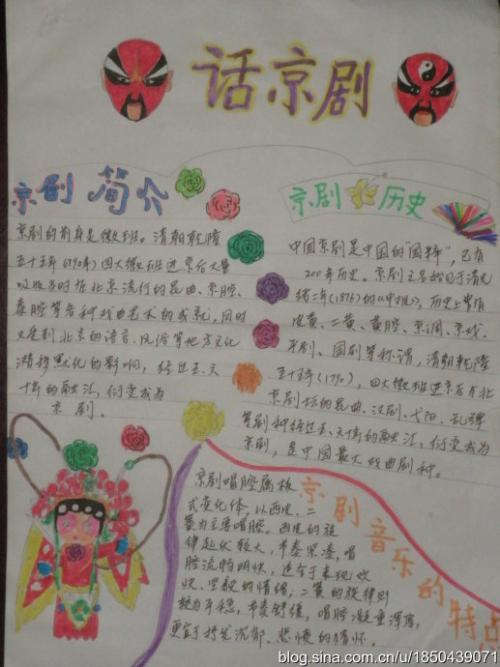 话京剧
京剧简介
京剧的前身是徽班。清朝乾隆
五十五年(1790年)四大徽班进京后大量
吸收当时在北京流行的昆曲、京腔、
秦腔等各种戏曲艺术的成就，同时
又受到北京的语言、风俗等地方文化
潜移默化的影响，经过五、六
十年的融汇，衍变成为
京剧。
京剧 历史
中国京剧是中国的"国粹"，已有
200年历史。京剧之名始见于清光
绪二年(1876)的《申报》，历史上曾有
皮黄、二黄、黄腔、京调、京戏、
平剧、国剧等称谓，清朝乾隆
五十五年(1790)，四大徽班进京后与北
京剧坛的昆曲、汉剧、弋阳、乱弹
等剧种经过五、六十年的融汇，衍变成为
京剧，是中国最大戏曲剧种。
京剧音乐的特点
京剧唱腔属板
式变化体，以西皮、二
黄为主要唱腔。西皮的旋
律起伏较大，节奏紧凑，唱
腔流畅明快，适合于表现欢
快、坚毅的情绪，二黄的旋律则
较为平稳，节奏舒缓，唱腔凝重浑厚，
更宜于抒发沉郁、悲愤的情怀。
blog.sina.com.cn/u/1850439071